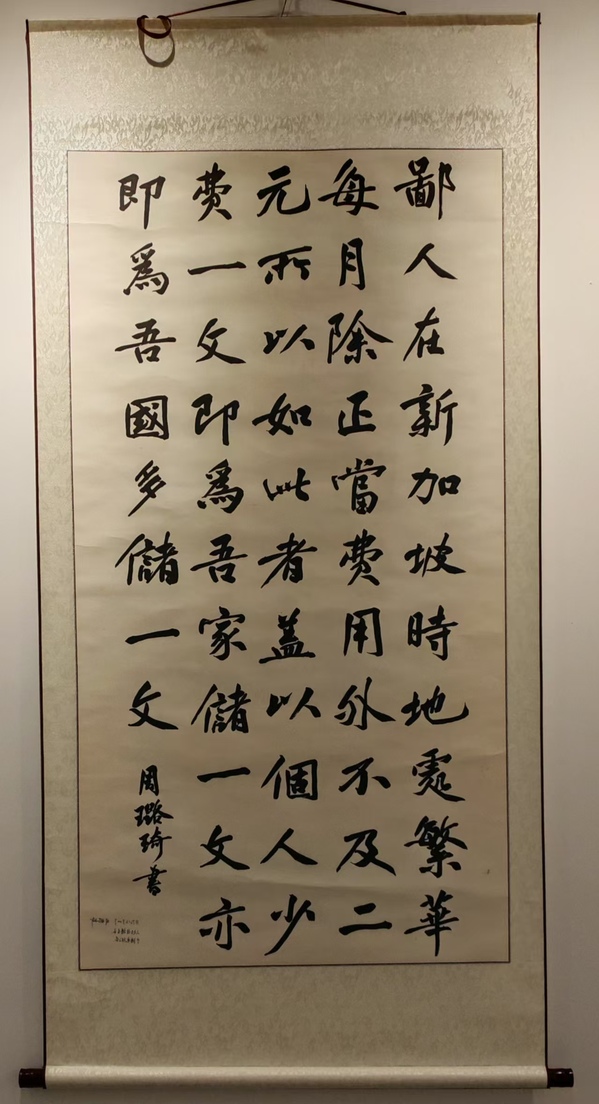 鄙人在新加坡時地處繁華
每月除正當費用外不及二
元所以如此者蓋以個人少
費一文即為吾家儲一文亦
即為吾國多儲一文
周璐琦書